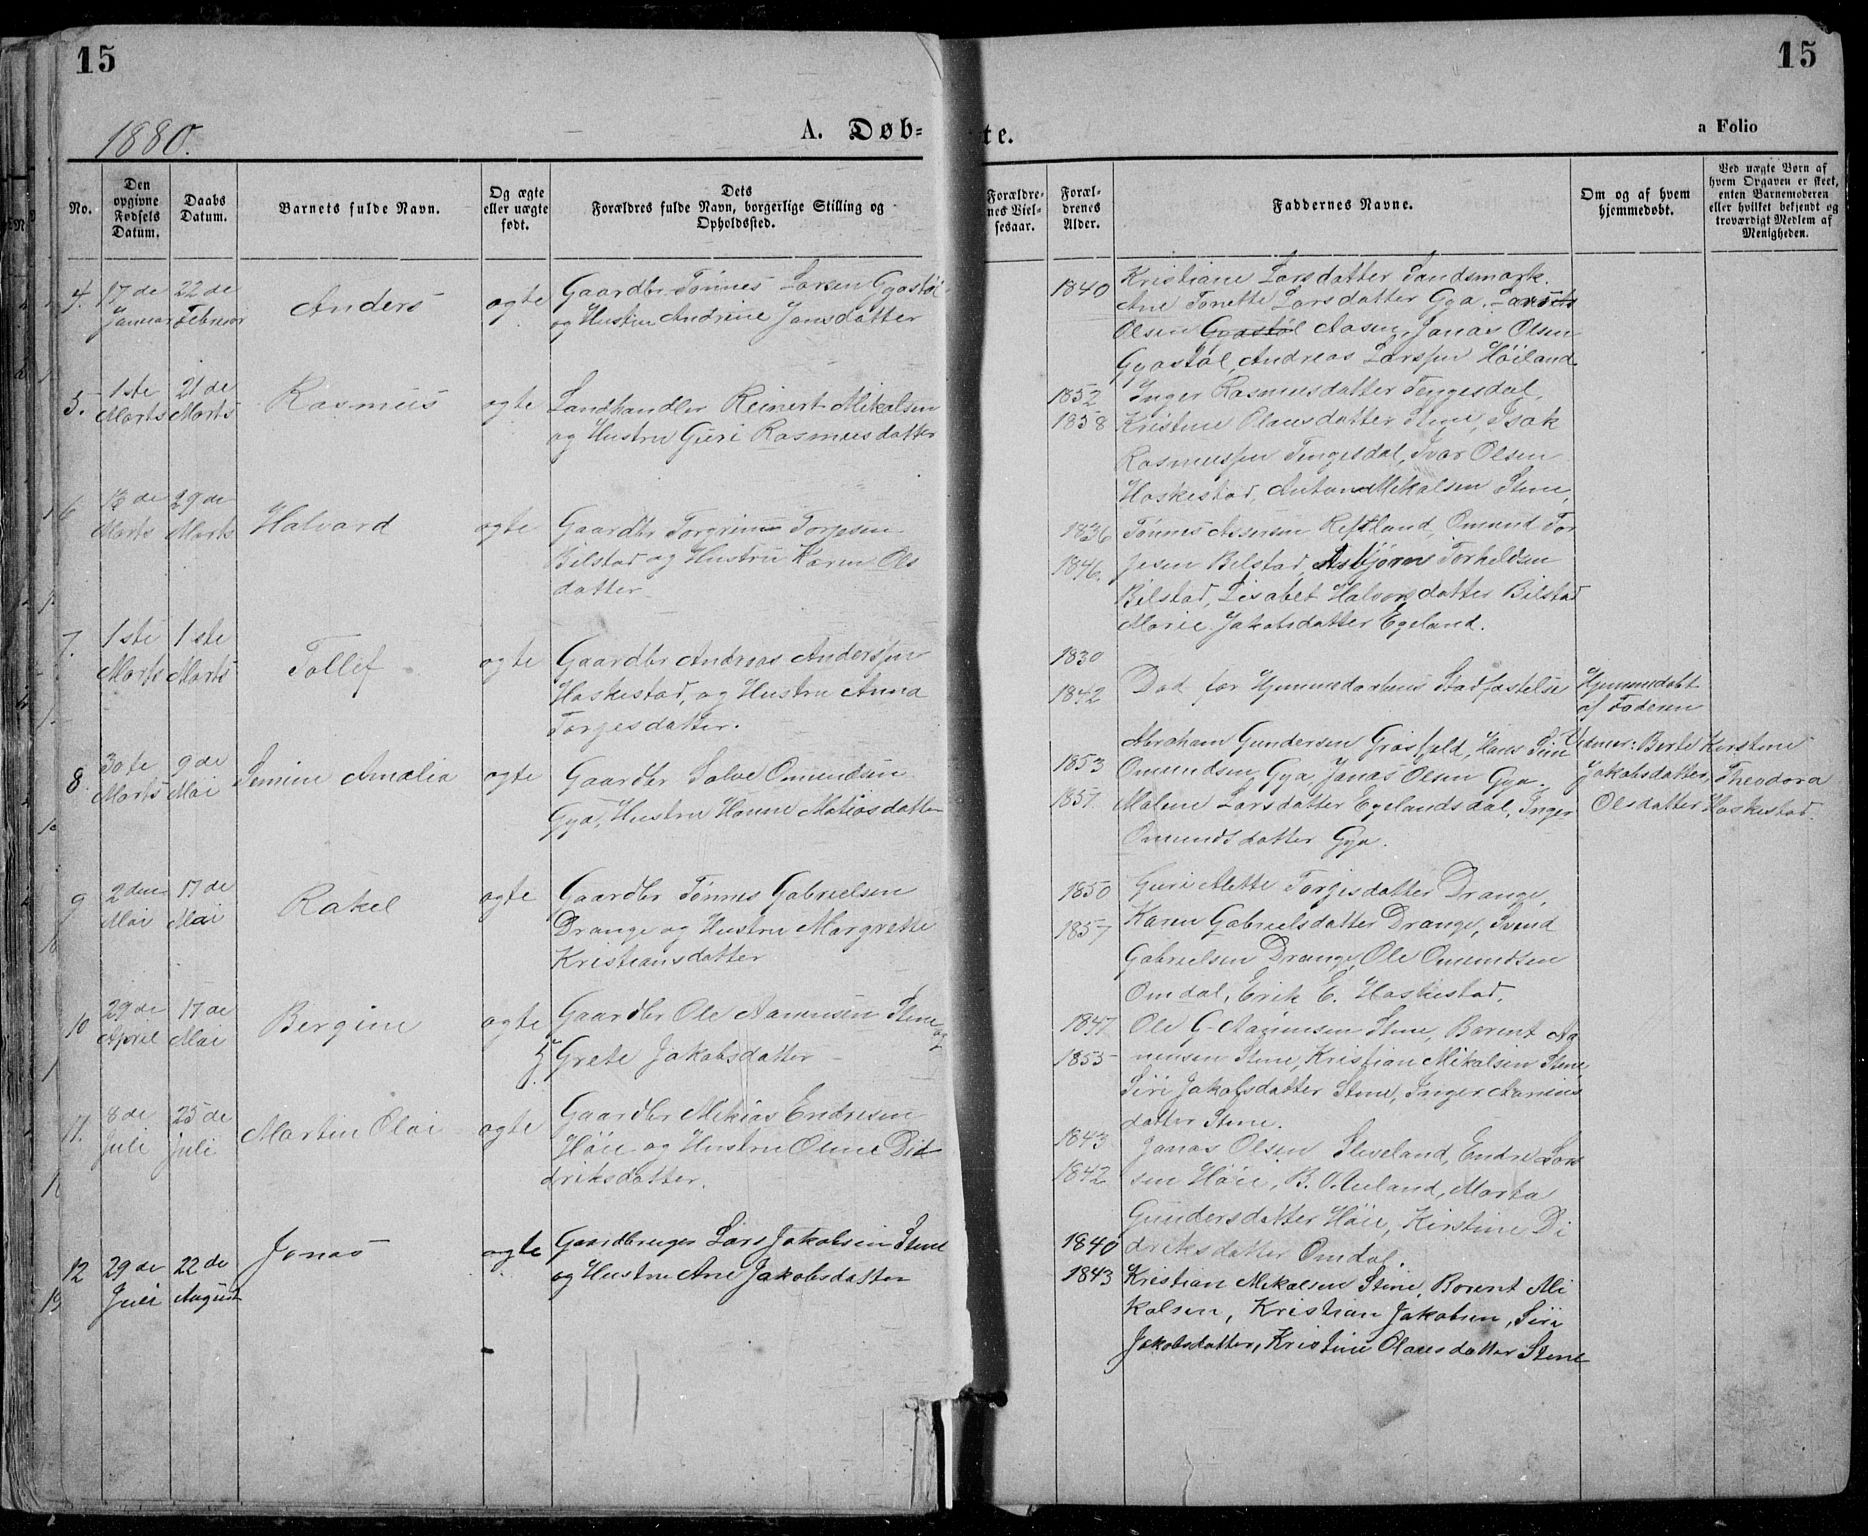 15
15
1880.
A. Døb-
te.
a Folio
No.
Den opgivne Fødsels Datum.
Daabs Datum.
Barnets fulde Navn.
Og ægte eller uægte født.
Dets Forældres fulde Navn, borgerlige Stilling og Opholdssted.
Forældrenes Vielsesaar.
Forældrenes Alder.
Faddernes Navne.
Om og af hvem hjemmedøbt.
Ved uægte Børn af hvem Opgaven er skeet, enten Barnemoderen eller hvilket bekjendt og troværdigt Medlem af Menigheden.
4. 17de Januar 22de Februar Anders ægte
Gaardbr Tønnes Larsen Gyastøl
og Hustru Andrine Jonsdatter
1840
Kristiane Larsdatter Tandsmark.
Ane Tonette Larsdatter Gya,
Olsen Gyastøl Aasen, Jonas Olsen
Gyastøl, Andreas Larssen Høiland
5. 1ste Marts 21de Marts Rasmus ægte
Landhandler Reinert Mikalsen
og Hustru Guri Rasmusdatter
1852
1858
Inger Rasmusdatter Tengesdal,
Kristine Olausdatter Stene, Isak
Rasmussen Tengesdal, Ivar Olsen
Haskestad, Anton Mikalsen Stene,
6 13de Marts 29de Marts Halvard ægte
Gaardbr Torgrim Torjesen
Bilstad og Hustru Karen Ols
datter
1836
1846.
Tønnes Assersen Refsland, Omund Tor
jesen Bilstad, Asbjørn Torkeldsen
Bilstad, Lisabet Halvorsdatter Bilstad
Marie Jakobsdatter Egeland.
7. 1ste Marts 1ste Marts Tollef ægte
Gaardbr Andreas Anderssen
Haskestad, og Hustru Anna
Torjesdatter.
1830
1842
Død før Hjemmedaabens Stadfæstelse
Hjemmedøbt
af Faderen
Vidner: Berte Kirstine
Jakobsdatter, Theodora
Olsdatter Haskestad.
8. 30te Marts 9de Mai Semine Amalia ægte
Gaardbr Salve Omundsen
Gya, Hustru Hanne Matiasdatter
1853
1857.
Abraham Gundersen Grøsfjeld, Hans Tine
Omundsen Gya, Jonas Olsen Gya.
Malene Larsdatter Egelandsdal, Inger
Omundsdatter Gya.
9 2den Mai 17de Mai Rakel ægte
Gaardbr Tønnes Gabrielsen
Drange og Hustru Margrette
Kristiansdatter
1850
1857
Guri Mette Torjesdatter Drange,
Karen Gabrielsdatter Drange, Svend
Gabrielsen Drange, Ole Omundsen
Omdal, Erik E. Haskestad.
10 29de April 17de Mai Bergine ægte
Gaardbr Ole Aamensen Stene og
H Grete Jakobsdatter
1847
1855
Ole G. Aamensen Stene, Barent Aa
mensen Stene, Kristian Mikalsen Stene,
Siri Jakobsdatter Stene, Inger Aamens
datter Stene.
11. 8de Juli 25de Juli Martin Olai ægte
Gaardbr Mikias Endresen
Høie og Hustru Oline Did
driksdatter.
1843
1842
Jonas Olsen Steveland, Endre Lars
sen Høie, B. O. Aueland, Marta
Gundersdatter Høie, Kirstine Di
driksdatter Omdal.
12 29de Juli 22de August Jonas ægte
Gaardbruger Lars Jakobsen Stene
og Hustru Ane Jakobsdatter
1840
1843
Kristian Mikalsen Stene, Barent Mi
kalsen, Kristian Jakobsen, Siri
Jakobsdatter, Kristine Olausdatter Stene